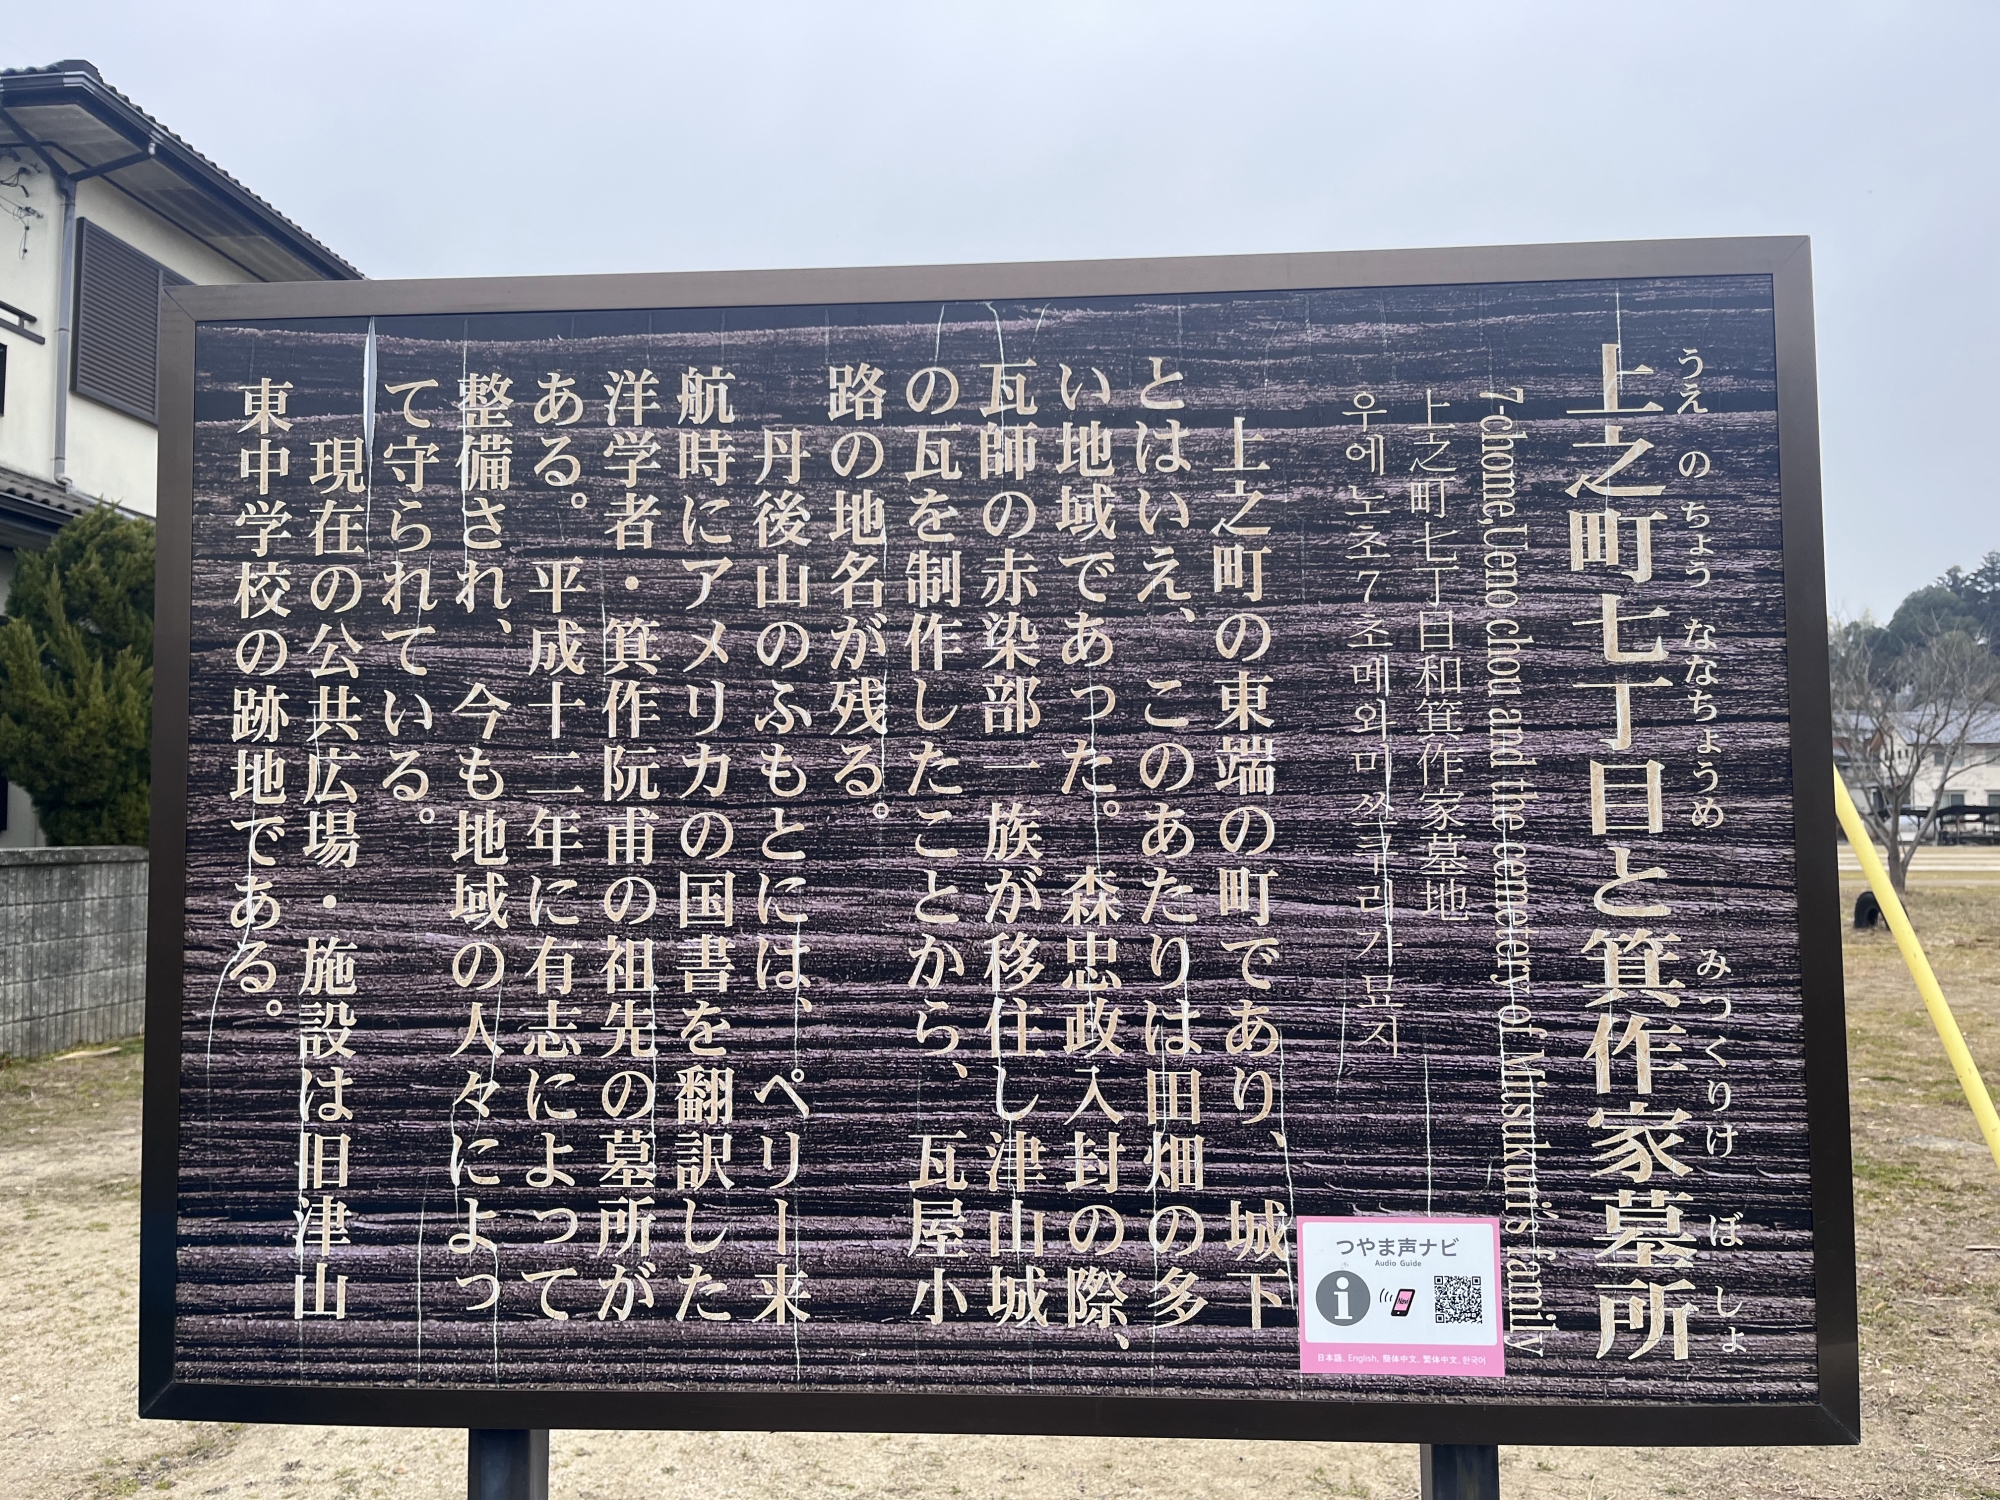 上之町七丁目と箕作家墓所
うえのちょうななちょうめ みつくりけ ぼしょ
7-chome,Ueno chou and the cemetery of Mitsukuri's family
上之町七丁目和箕作家墓地
우에노초7초메와미쓰쿠리가묘지
上之町の東端の町であり、城下
とはいえ、このあたりは田畑の多
い地域であった。森忠政入封の際、
瓦師の赤染部一族が移住し津山城
の瓦を制作したことから、瓦屋小
路の地名が残る。
丹後山のふもとには、ペリー来
航時にアメリカの国書を翻訳した
洋学者・箕作阮甫の祖先の墓所が
ある。平成十二年に有志によって
整備され、今も地域の人々によっ
て守られている。
現在の公共広場・施設は旧津山
東中学校の跡地である。
つやま声ナビ
Audio Guide
i
Navi
日本語、English、簡体中文、繁体中文、한국어